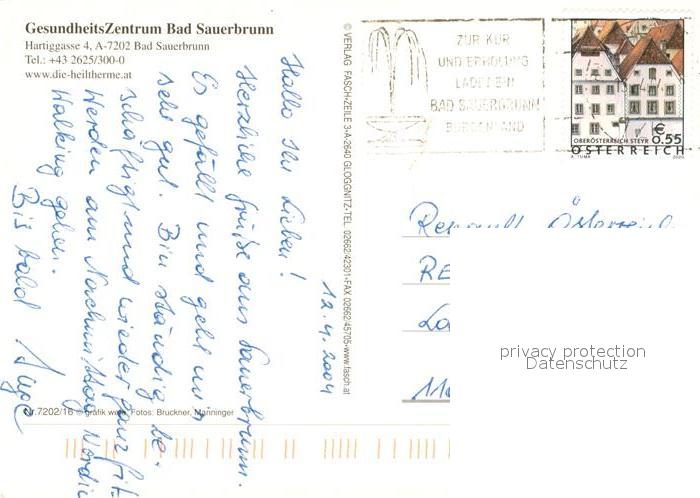 GesundheitsZentrum Bad Sauerbrunn
Hartiggasse 4, A-7202 Bad Sauerbrunn
Tel.: +43 2625/300-0
www.die-heiltherme.at
12.4.2004
Hallo Ihr Lieben!
Herzliche Grüße aus Sauerbrunn.
Es gefällt und geht mir
sehr gut. Bin ständig be-
schäftigt und wieder ganz fit.
Werden am Nachmittag Nordic
Walking gehen.
Bis bald
Nr.7202/16 © grafik werk, Fotos: Bruckner, Manninger
© VERLAG FASCH-ZEILE 3-A-2640 GLOGGNITZ-TEL. 02662/42301-FAX 02662/45705-www.fasch.at
ZUR KUR
UND ERHOLUNG
LADET EIN
BAD SAUERBRUNN
BURGENLAND
OBERÖSTERREICH STEYR
€ 0.55
ÖSTERREICH
A. TUMA
Renault Österreich
RE
La
privacy protection
Datenschutz